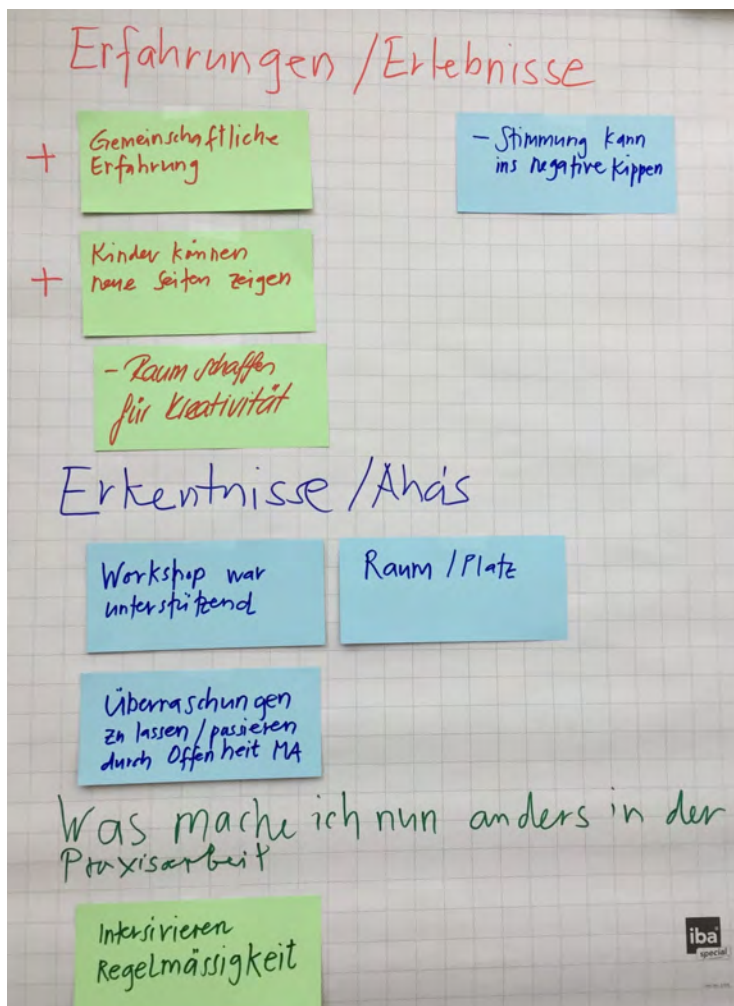 Erfahrungen / Erlebnisse
+ Gemeinschaftliche
Erfahrung
- Stimmung kann
ins negative kippen
+ Kinder können
neue Seiten zeigen
- Raum schaffen
für Kreativität
Erkentnisse / Aha's
Workshop war
unterstützend
Raum / Platz
Überraschungen
zu lassen / passieren
durch Offenheit MA
Was mache ich nun anders in der
Praxisarbeit
Intersivieren
Regelmässigkeit
iba
special